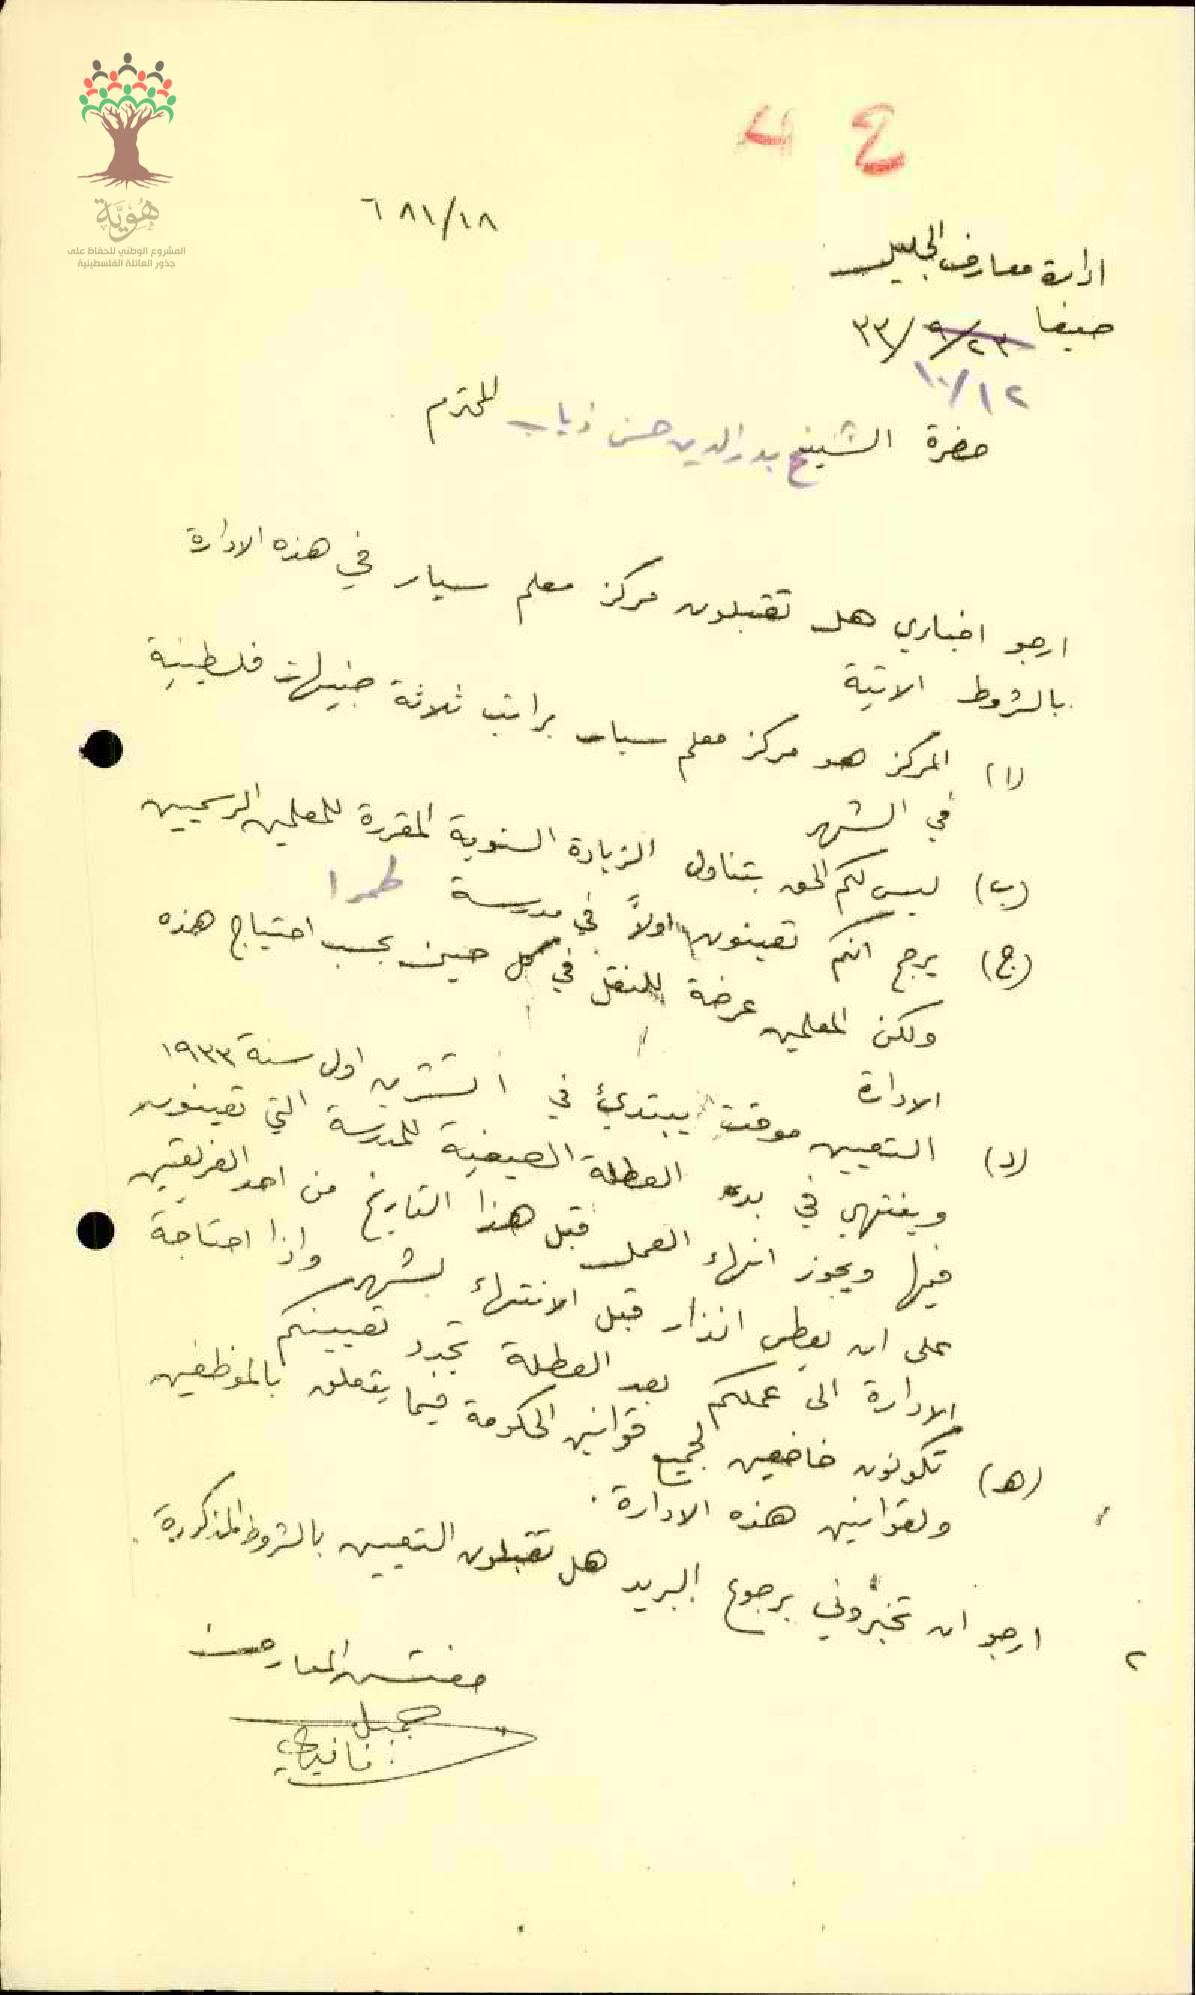 هُوِيَّة
المشروع الوطني للحفاظ على
جذور العائلة الفلسطينية
٦٨١/١٨
ادارة معارف الجليل
حيفا ٢٣/٩/٣٣
١٠/١٢
حضرة الشيخ بدر الدين حسن ذياب المحترم
ارجو اخباري هل تقبلون مركز معلم سيار في هذه الادارة
بالشروط الاتية
(ا) المركز هو مركز معلم سيار براتب ثلاثة جنيهات فلسطينية
في الشهر
(ب) ليس لكم الحق بتناول الزيادة السنوية المقررة للمعلمين الرسميين
(ج) يرجح انكم تعينون اولاً في مدرسة طمرا
ولكن المعلمين عرضة للنقل في كل حين بحسب احتياج هذه
الادارة
(د) التعيين موقت يبتدئ في ١ تشرين اول سنة ١٩٣٣
وينتهي في بدء العطلة الصيفية للمدرسة التي تعينون
فيها ويجوز انهاء العمل قبل هذا التاريخ من احد الفريقين
على ان يعطى انذار قبل الانتهاء بشهر واذا احتاجة
الادارة الى عملكم بعد العطلة تجدد تعيينكم
(ه) تكونون خاضعين لجميع قوانين الحكومة فيما يتعلق بالموظفين
ولقوانين هذه الادارة.
٢ ارجو ان تخبروني برجوع البريد هل تقبلون التعيين بالشروط المذكورة.
مفتش المعارف
جميل